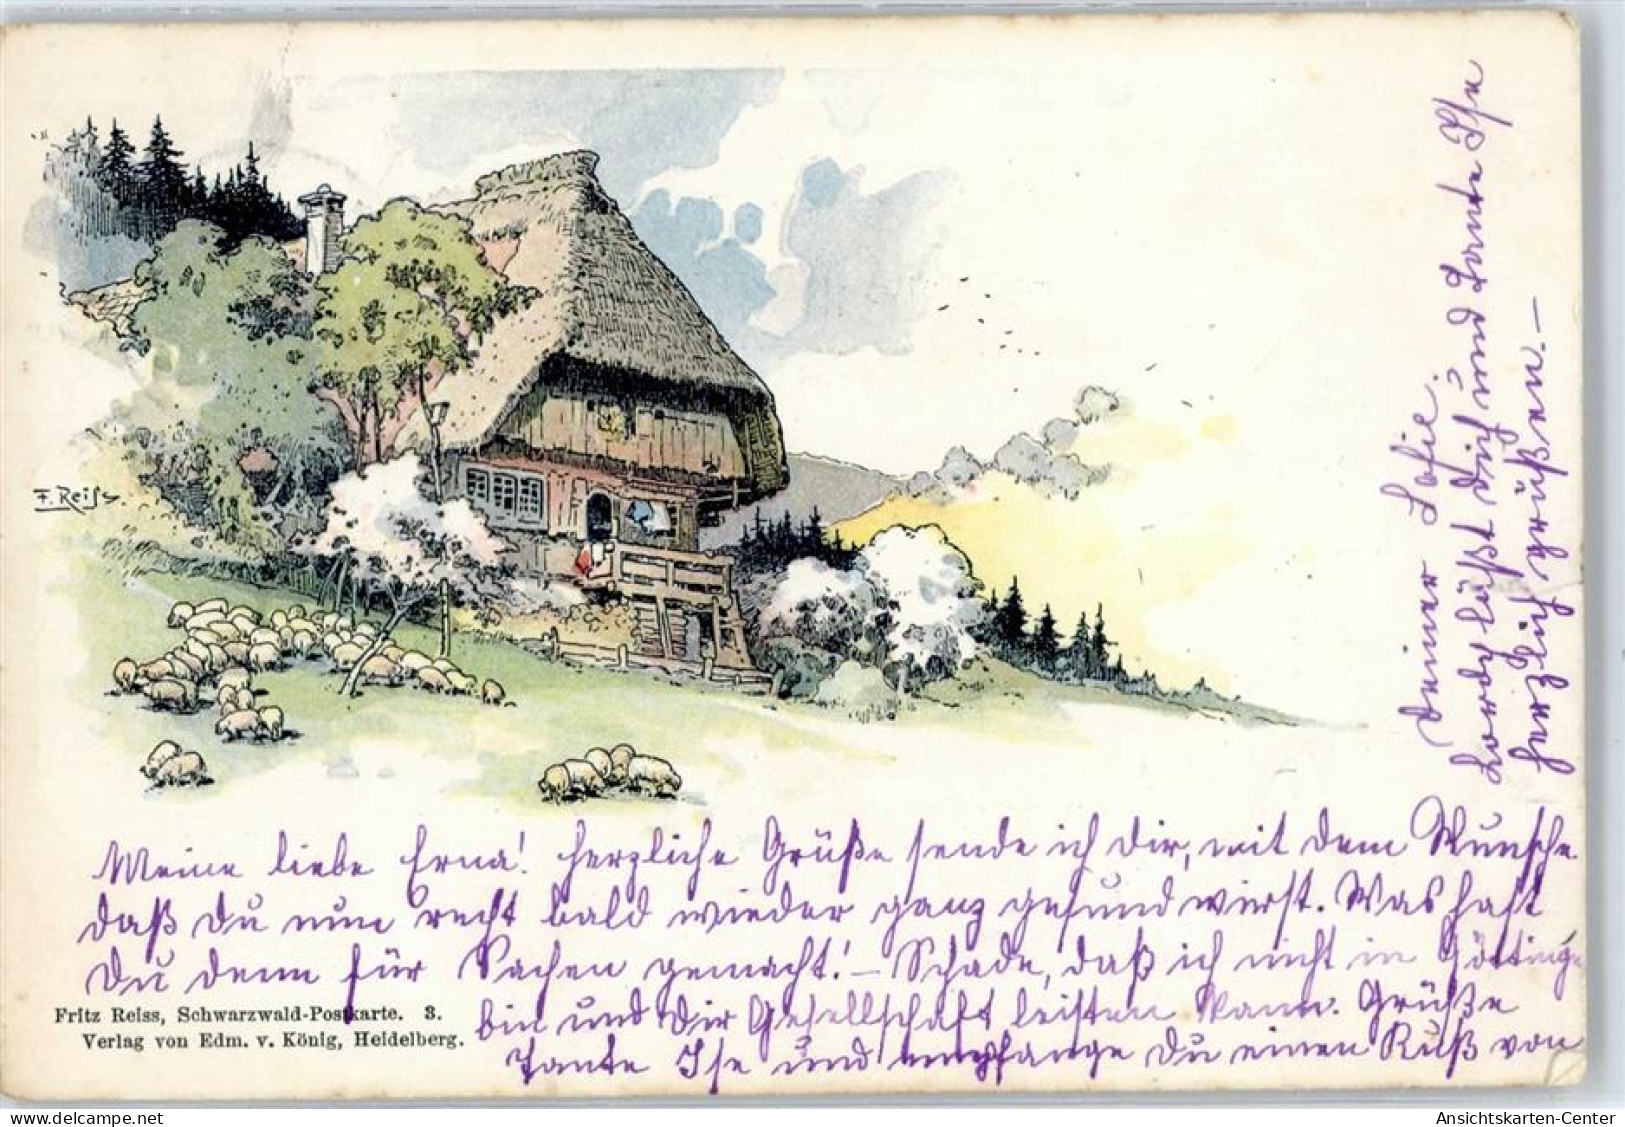 F. Reiss
Meine liebe Erna! herzliche Grüße sende ich dir, mit dem Wunsche
daß du nun recht bald wieder ganz gesund wirst. Was hast
Du denn für Sachen gemacht! – Schade, daß ich nicht in Götting
bin und dir Gesellschaft leisten kann. Grüße
Tante Ilse und empfange Du einen Kuß von
Deiner Sofie.
läßt dich und Tante Ilse
herzlich grüßen. –
Fritz Reiss, Schwarzwald-Postkarte. 3.
Verlag von Edm. v. König, Heidelberg.
https://www.delcampe.net
Ansichtskarten-Center